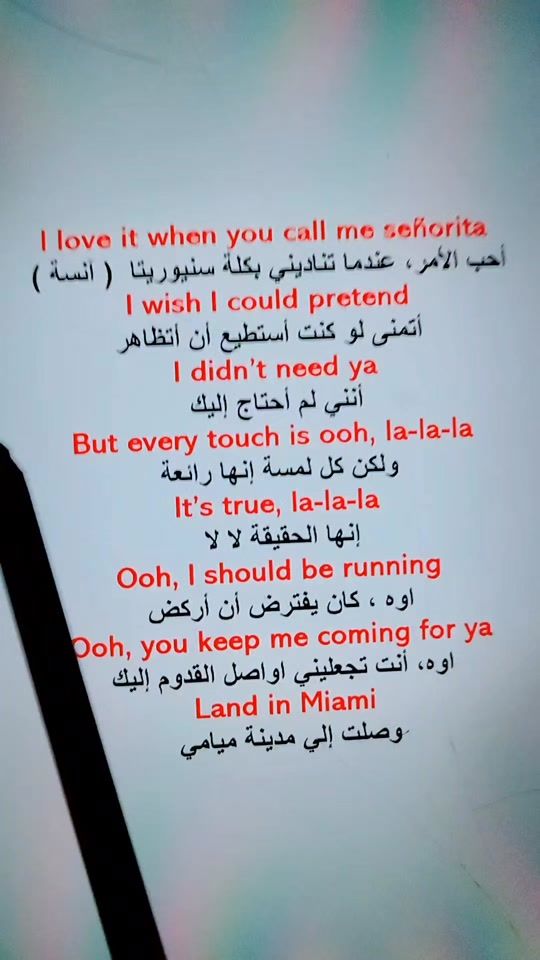 I love it when you call me señorita
أحب الأمر، عندما تناديني بكلة سنيوريتا ( آنسة )
I wish I could pretend
أتمنى لو كنت أستطيع أن أتظاهر
I didn't need ya
أنني لم أحتاج إليك
But every touch is ooh, la-la-la
ولكن كل لمسة إنها رائعة
It's true, la-la-la
إنها الحقيقة لا لا
Ooh, I should be running
اوه ، كان يفترض أن أركض
Ooh, you keep me coming for ya
اوه، أنت تجعليني اواصل القدوم إليك
Land in Miami
وصلت إلي مدينة ميامي